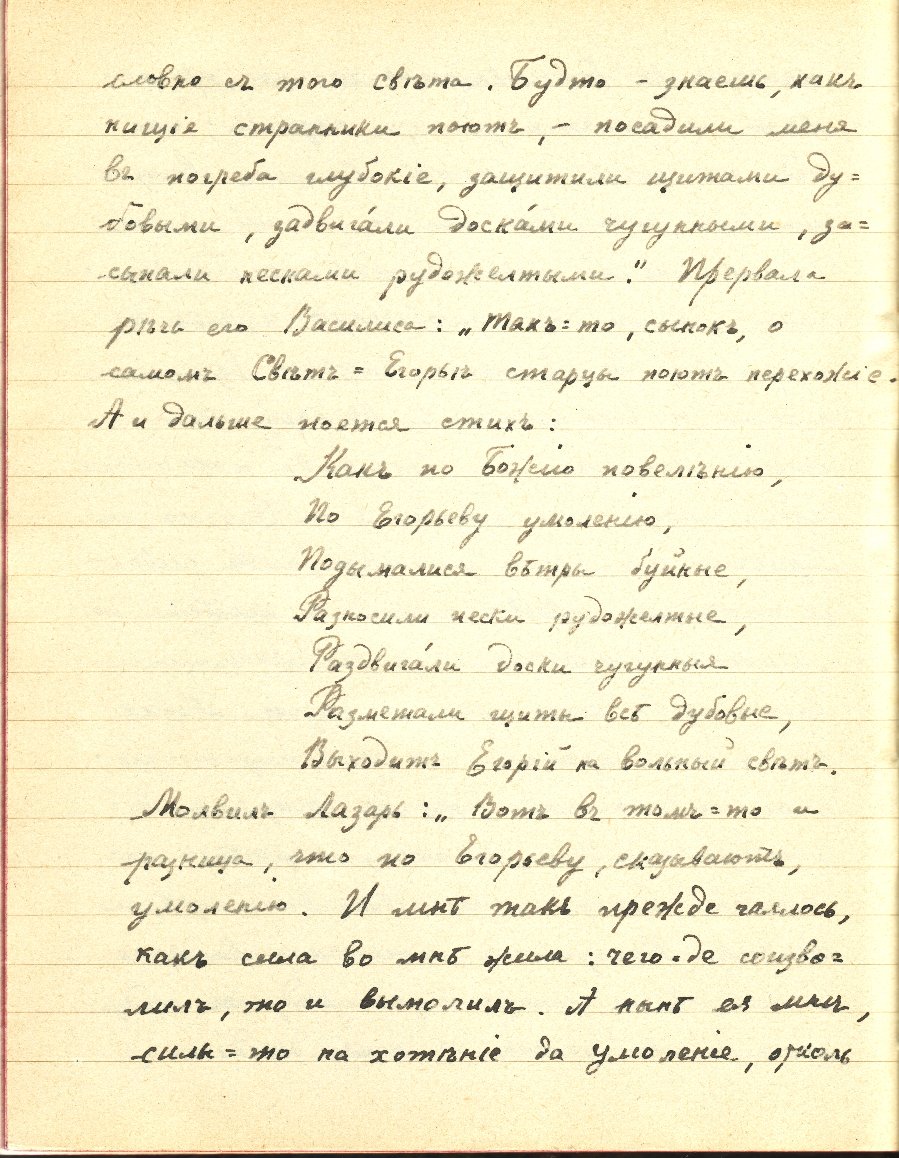 словно съ того свѣта. Будто - знаешь, какъ
нищіе странники поютъ, - посадили меня
въ погреба глубокіе, защитили щитами ду=
бовыми, задвига́ли доска́ми чугунными, за=
сыпали песками рудожелтыми." Прервала
рѣчь его Василиса: „Такъ=то, сынокъ, о
самомъ Свѣтѣ=Егорьѣ старцы поютъ перехожіе.
А и дальше поется стихъ:
Какъ по Божію повелѣнію,
По Егорьеву умоленію,
Подымалися вѣтры буйные,
Разносили пески рудожелтые,
Раздвига́ли доски чугунныя
Разметали щиты всѣ дубовые,
Выходитъ Егорій на вольный свѣтъ.
Молвилъ Лазарь: „Вотъ въ томъ=то и
разница, что по Егорьеву, сказываютъ,
умоленію. И мнѣ такъ прежде чаялось,
какъ сила во мнѣ жила: чего-де соизво=
лилъ, то и вымолилъ. А нынѣ ея нѣтъ,
силы=то на хотѣніе да умоленіе, отколь